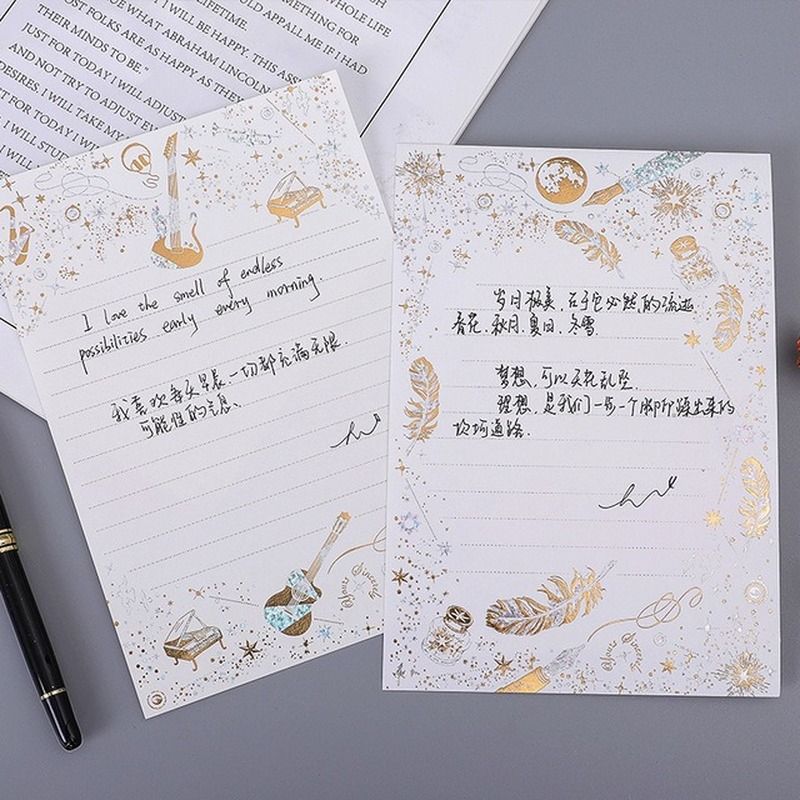 SOMETHING FOR
LIFETIME. WOULD APPALL ME IF I HAD
WHOLE LIFE
DUE WHAT ABRAHAM LINCOLN
I WILL BE HAPPY. THIS ASS
MOST FOLKS ARE AS HAPPY AS THEY
THEIR MINDS TO BE."
JUST FOR TODAY I WILL ADJUST
AND NOT TRY TO ADJUST EV
DESIRES. I WILL TAKE MY
FOR TODAY I W
I WILL STUD
I love the smell of endless
possibilities early every morning.
我喜欢每天早晨,一切都充满无限
可能性的气息.
岁月极美,在于它必然的流逝
春花、秋月、夏日、冬雪.
梦想,可以天花乱坠
理想,是我们一步一个脚印踩出来的
坎坷道路.